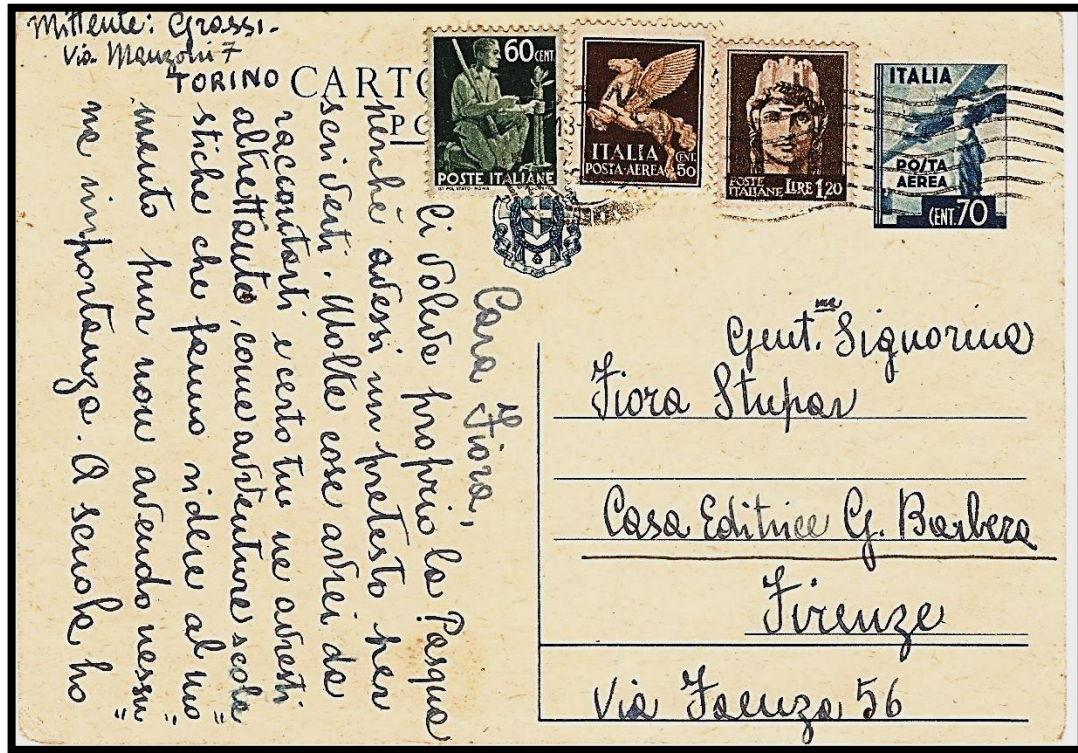 Mittente: Grassi.
Via Manzoni 7
TORINO
CARTO
PO
60 CENT.
POSTE ITALIANE
ITALIA
POSTA-AEREA
CENT. 50
POSTE ITALIANE
LIRE 1,20
ITALIA
POSTA AEREA
CENT. 70
Gent.ma Signorina
Fiora Stupar
Casa Editrice G. Barbera
Firenze
Via Faenza 56
Cara Fiora,
Ci voleva proprio la Pasqua
perchè avessi un pretesto per
scriverti. Molte cose avrei da
raccontarti e certo tu ne avresti
altrettanto, come avventure scola
stiche che fanno ridere al mo"
mento pur non avendo nessu"
na importanza. A scuola ho